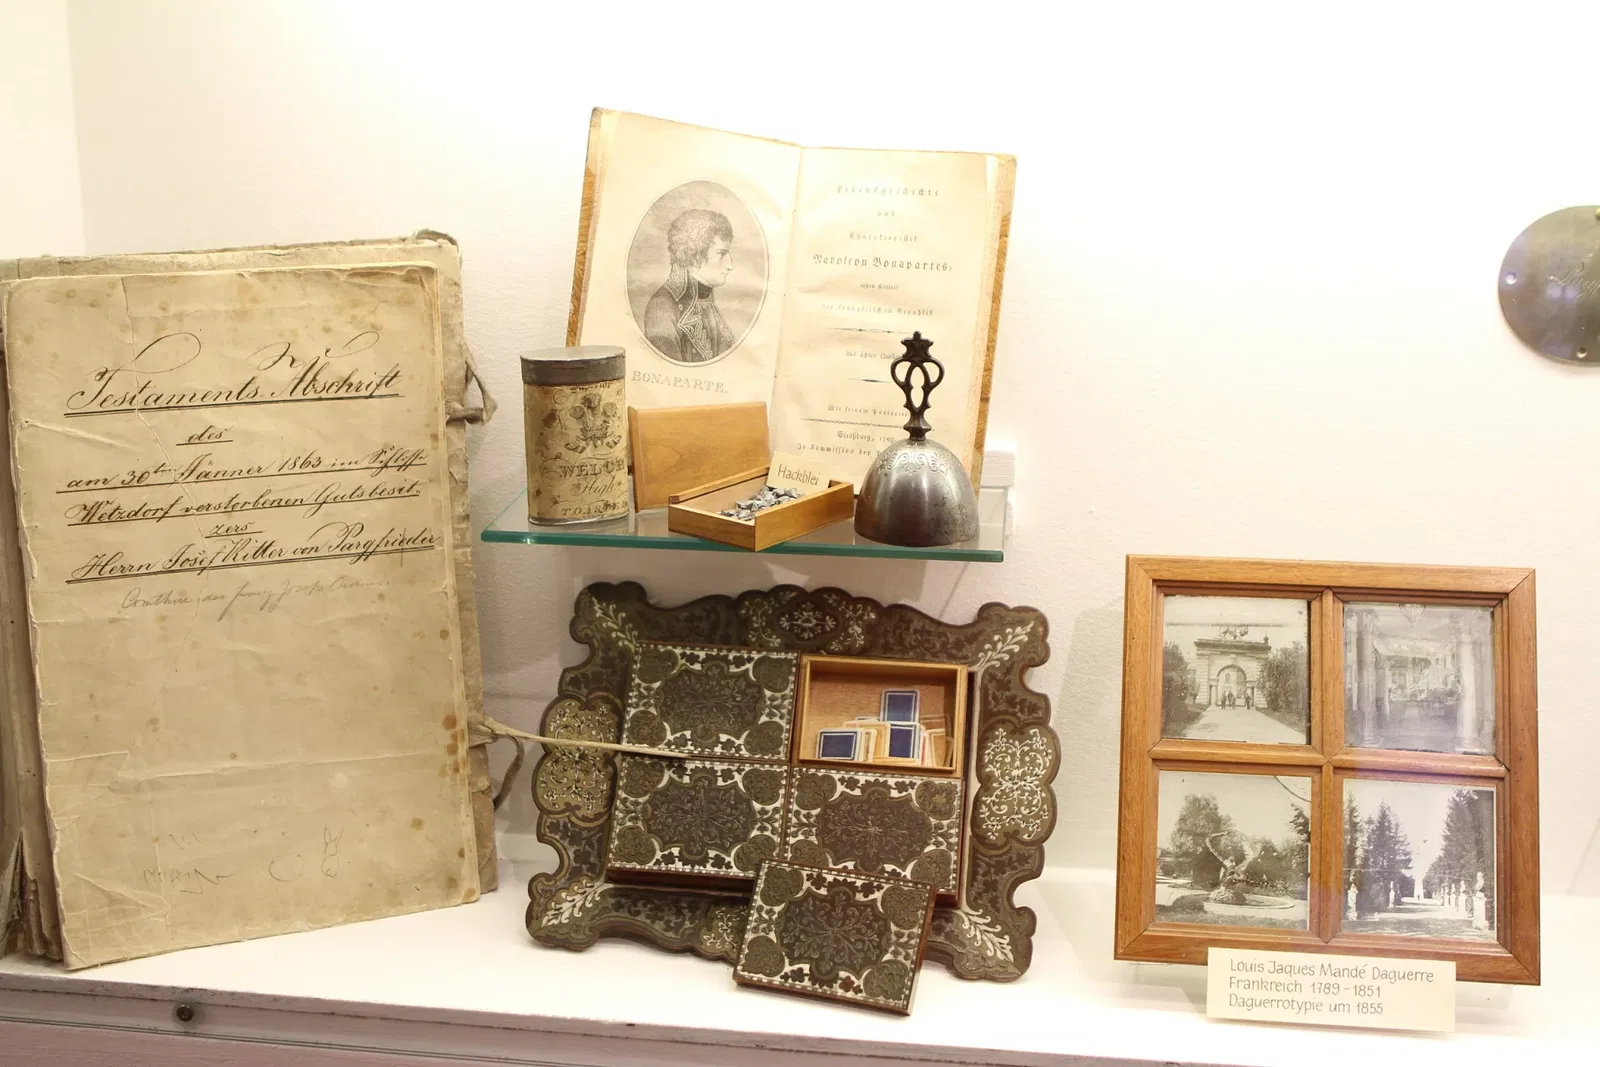 Testaments-Abschrift
des
am 30ten Jänner 1863 im Schlosse
Wetzdorf verstorbenen Gutsbesit-
zers
Herrn Josef Ritter von Pargfrieder
BONAPARTE.
Lebensgeschichte
und
Charakteristik
Napoleon Bonapartes,
ersten
der französischen Republik
Mit seinem Portrait
Straßburg,
In Kommission
WELCH
High
Hackblei
Louis Jaques Mandé Daguerre
Frankreich 1789-1851
Daguerrotypie um 1855